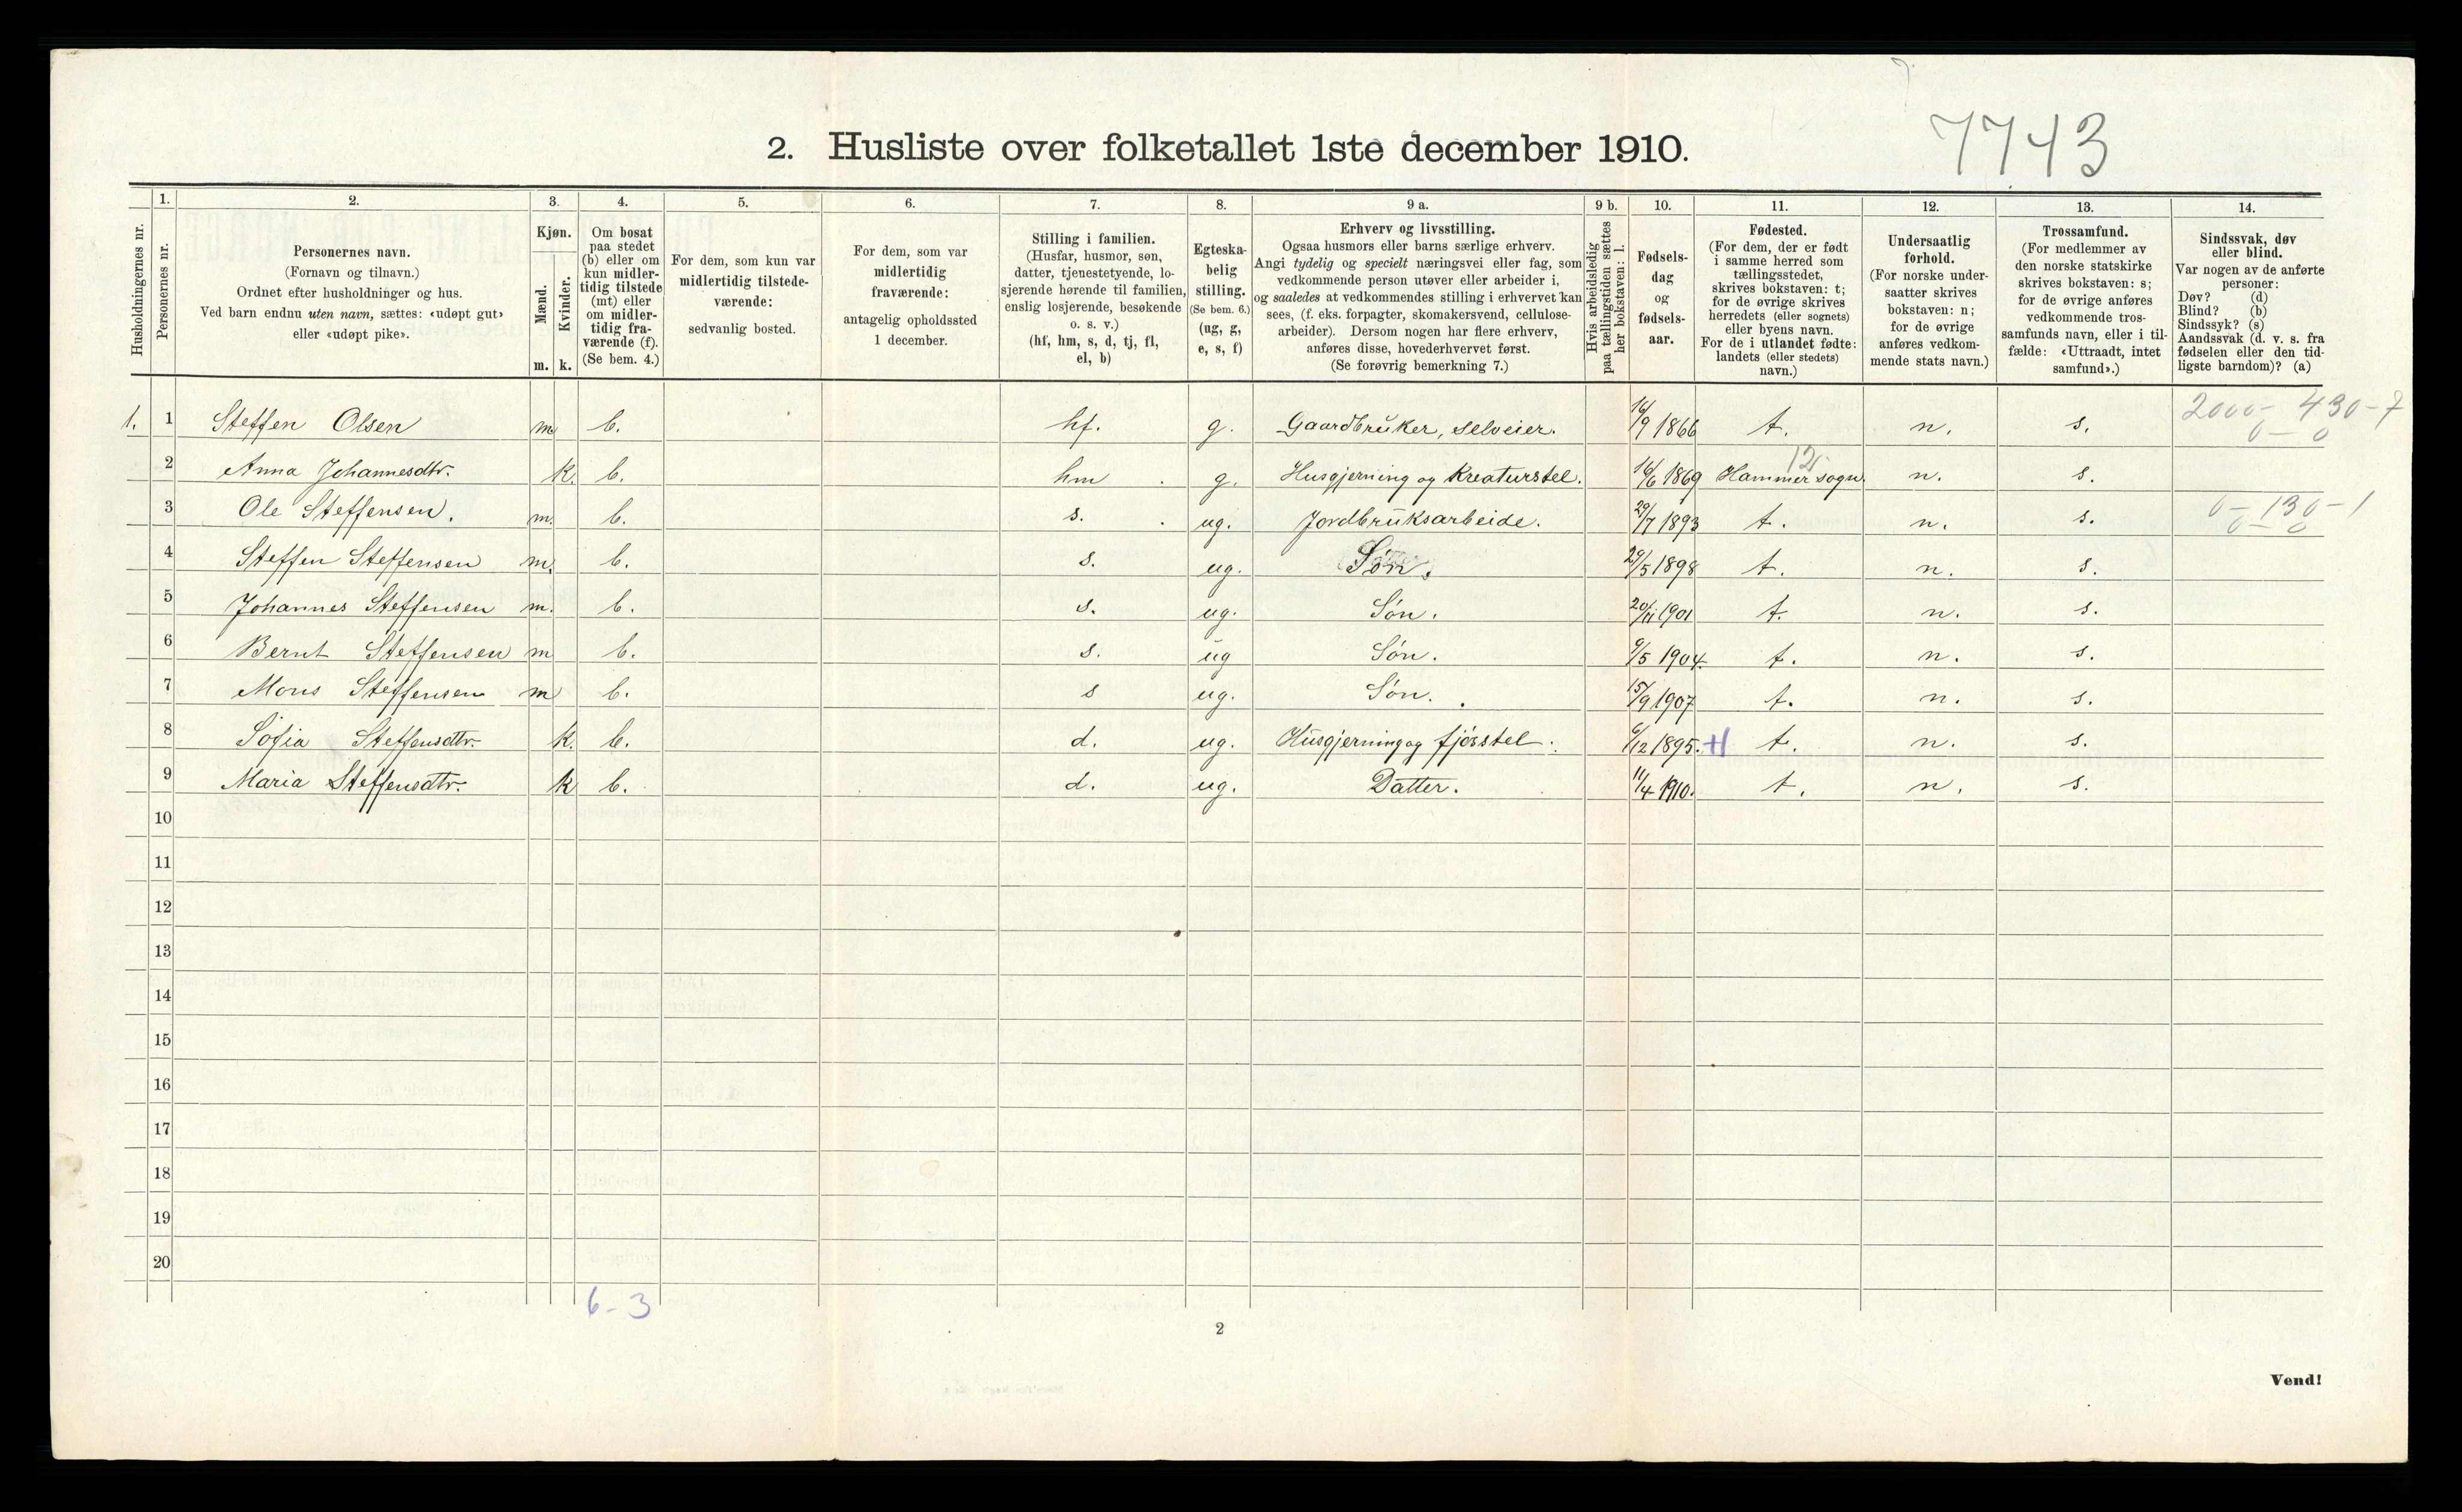 7743
2. Husliste over folketallet 1ste december 1910.
Husholdningernes nr.
1. Personernes nr.
2. Personernes navn.
(Fornavn og tilnavn.)
Ordnet efter husholdninger og hus.
Ved barn endnu uten navn, sættes: «udøpt gut»
eller «udøpt pike».
3. Kjøn.
Mænd. m.
Kvinder. k.
4. Om bosat
paa stedet
(b) eller om
kun midler-
tidig tilstede
(mt) eller
om midler-
tidig fra-
værende (f).
(Se bem. 4.)
5. For dem, som kun var
midlertidig tilstede-
værende:
sedvanlig bosted.
6. For dem, som var
midlertidig
fraværende:
antagelig opholdssted
1 december.
7. Stilling i familien.
(Husfar, husmor, søn,
datter, tjenestetyende, lo-
sjerende hørende til familien,
enslig losjerende, besøkende
o. s. v.)
(hf, hm, s, d, tj, fl,
el, b)
8. Egteska-
belig
stilling.
(Se bem. 6.)
(ug, g,
e, s, f)
9 a. Erhverv og livsstilling.
Ogsaa husmors eller barns særlige erhverv.
Angi tydelig og specielt næringsvei eller fag, som
vedkommende person utøver eller arbeider i,
og saaledes at vedkommendes stilling i erhvervet kan
sees, (f. eks. forpagter, skomakersvend, cellulose-
arbeider). Dersom nogen har flere erhverv,
anføres disse, hovederhvervet først.
(Se forøvrig bemerkning 7.)
9 b. Hvis arbeidsledig
paa tællingstiden sættes
her bokstaven: l.
10. Fødsels-
dag
og
fødsels-
aar.
11. Fødested.
(For dem, der er født
i samme herred som
tællingsstedet,
skrives bokstaven: t;
for de øvrige skrives
herredets (eller sognets)
eller byens navn.
For de i utlandet fødte:
landets (eller stedets)
navn.)
12. Undersaatlig
forhold.
(For norske under-
saatter skrives
bokstaven: n;
for de øvrige
anføres vedkom-
mende stats navn.)
13. Trossamfund.
(For medlemmer av
den norske statskirke
skrives bokstaven: s;
for de øvrige anføres
vedkommende tros-
samfunds navn, eller i til-
fælde: «Uttraadt, intet
samfund».)
14. Sindssvak, døv
eller blind.
Var nogen av de anførte
personer:
Døv? (d)
Blind? (b)
Sindssyk? (s)
Aandssvak (d. v. s. fra
fødselen eller den tid-
ligste barndom)? (a)
1. 1 Steffen Olsen m b. hf. g. Gaardbruker, selveier. 16/9 1866 t. n. s. 2000 - 430 - 7
0 - 0
2 Anna Johannesdtr. k. b. hm g. Husgjerning og Kreaturstel. 16/6 1869 Hammer sogn. 12 n. s.
3 Ole Steffensen. m. b. s. ug. Jordbruksarbeide. 29/7 1893 t. n. s. 0 - 130 - 1
0 - 0
4 Steffen Steffensen m. b. s. ug. Søn. 29/5 1898 t. n. s.
5 Johannes Steffensen m. b. s. ug. Søn. 20/11 1901 t. n. s.
6 Bernt Steffensen m b. s. ug Søn. 9/5 1904. t. n. s.
7 Mons Steffensen m b. s ug. Søn. 15/9 1907 t. n. s.
8 Sofia Steffensdtr. k. b. d. ug. Husgjerning og fjøsstel. 6/12 1895. t. n. s.
9 Maria Steffensdtr. k b. d. ug. Datter. 11/4 1910. t. n. s.
10
11
12
13
14
15
16
17
18
19
20
6 - 3
2
Vend!